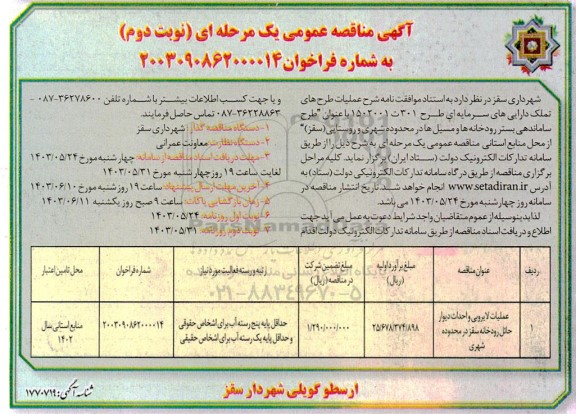 آگهی مناقصه عمومی یک مرحله ای (نوبت دوم)
به شماره فراخوان ۲۰۰۳۰۹۰۸۶۲۰۰۰۰۱۴
شهرداری سقز در نظر دارد به استناد موافقت نامه شرح عملیات طرح های
تملک دارایی های سرمایه ای طرح ۳۰۱ت ۱۵۰۲۰۰۱ با عنوان "طرح
ساماندهی بستر رودخانه ها و مسیل ها در محدوده شهری و روستایی (سقز)"
از محل منابع استانی مناقصه عمومی یک مرحله ای به شرح ذیل را از طریق
سامانه تدارکات الکترونیک دولت (ستاد ایران) برگزار نماید. کلیه مراحل
برگزاری مناقصه از طریق درگاه سامانه تدارکات الکترونیکی دولت (ستاد) به
آدرس www.setadiran.ir انجام خواهد شد. تاریخ انتشار مناقصه در
سامانه روز چهارشنبه مورخ ۱۴۰۳/۰۵/۲۴ می باشد.
لذا بدینوسیله از عموم متقاضیان واجد شرایط دعوت به عمل می آید جهت
اطلاع و دریافت اسناد مناقصه از طریق سامانه تدارکات الکترونیک دولت اقدام
و یا جهت کسب اطلاعات بیشتر با شماره تلفن ۳۶۲۷۸۶۰۰-۰۸۷
۳۶۲۲۸۸۶۳-۰۸۷ تماس حاصل فرمایند.
۱- دستگاه مناقصه گذار: شهرداری سقز
۲- دستگاه نظارت: معاونت عمرانی
۳- مهلت دریافت اسناد مناقصه از سامانه: چهار شنبه مورخ ۱۴۰۳/۰۵/۲۴
لغایت ساعت ۱۹ روز چهار شنبه مورخ ۱۴۰۳/۰۵/۳۱
۴- آخرین مهلت ارسال پیشنهاد: ساعت ۱۹ روز شنبه مورخ ۱۴۰۳/۰۶/۱۰
۵- زمان بازگشایی پاکات: ساعت ۹ صبح روز یکشنبه ۱۴۰۳/۰۶/۱۱
۶- نوبت اول روزنامه: ۱۴۰۳/۰۵/۲۴
۷- نوبت دوم روزنامه: ۱۴۰۳/۰۵/۳۱
ParsNamad
۰۲۱-۸۸۳۴۹۶۷۰-۵
ردیف عنوان مناقصه مبلغ برآورد اولیه (ریال) مبلغ تضمین شرکت در مناقصه (ریال) رتبه و رسته فعالیت مورد نیاز شماره فراخوان محل تامین اعتبار
۱ عملیات لایروبی و احداث دیوار حائل رودخانه سقز در محدوده شهری ۲۵/۶۷۸/۳۷۴/۸۹۸ ۱/۲۹۰/۰۰۰/۰۰۰ حداقل پایه پنج رسته آب برای اشخاص حقوقی و حداقل پایه یک رسته آب برای اشخاص حقیقی ۲۰۰۳۰۹۰۸۶۲۰۰۰۰۱۴ منابع استانی سال ۱۴۰۲
ارسطو گویلی شهردار سقز
شناسه آگهی: ۱۷۷۰۷۱۹